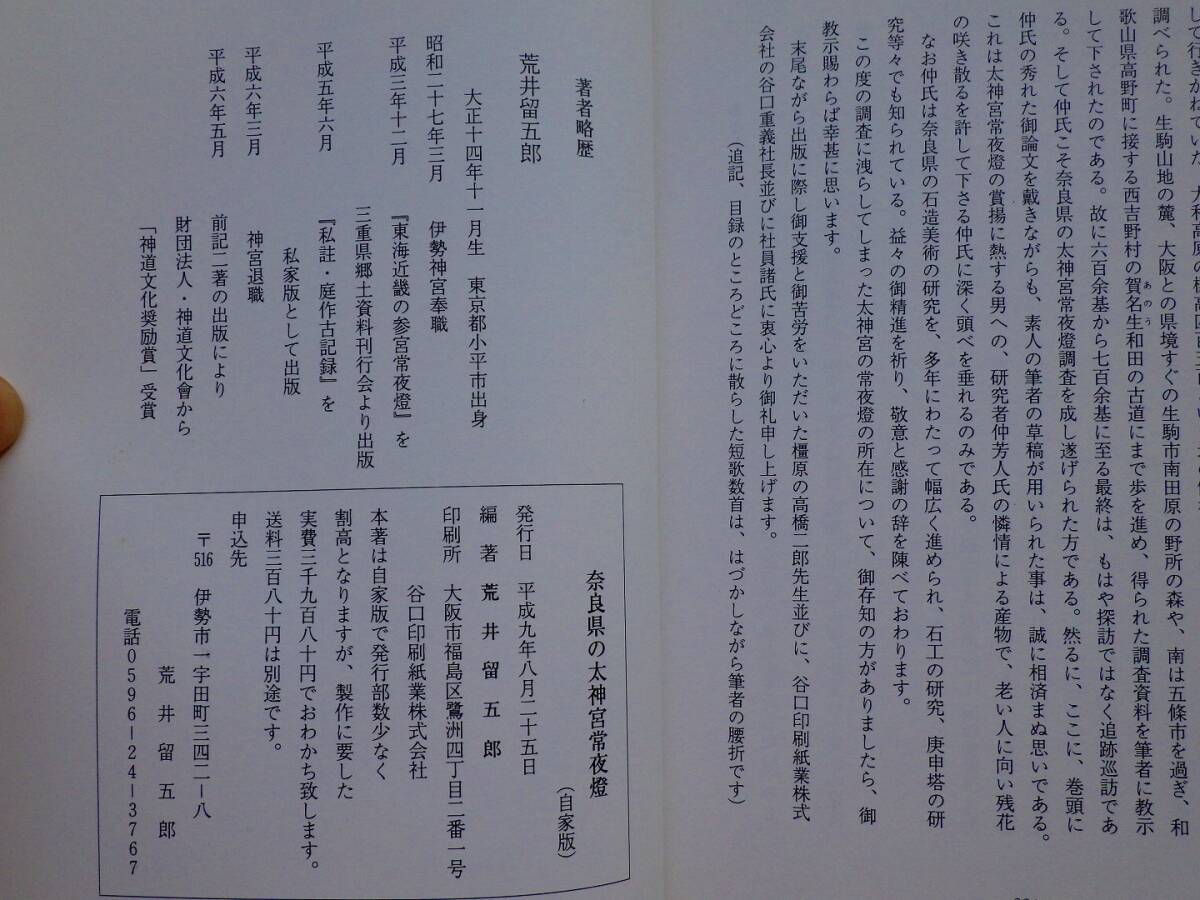 して行きかねていた
調べられた。生駒山地の麓、大阪との県境すぐの生駒市南田原の野所の森や、南は五條市を過ぎ、和
歌山県高野町に接する西吉野村の賀名生和田の古道にまで歩を進め、得られた調査資料を筆者に教示
あのう
して下されたのである。故に六百余基から七百余基に至る最終は、もはや探訪ではなく追跡巡訪であ
る。そして仲氏こそ奈良県の太神宮常夜燈調査を成し遂げられた方である。然るに、ここに、巻頭に
仲氏の秀れた御論文を戴きながらも、素人の筆者の草稿が用いられた事は、誠に相済まぬ思いである。
これは太神宮常夜燈の賞揚に熱する男への、研究者仲芳人氏の憐情による産物で、老い人に向い残花
の咲き散るを許して下さる仲氏に深く頭べを垂れるのみである。
なお仲氏は奈良県の石造美術の研究を、多年にわたって幅広く進められ、石工の研究、庚申塔の研
究等々でも知られている。益々の御精進を祈り、敬意と感謝の辞を陳べておわります。
この度の調査に洩らしてしまった太神宮の常夜燈の所在について、御存知の方がありましたら、御
教示賜わらば幸甚に思います。
末尾ながら出版に際し御支援と御苦労をいただいた橿原の高橋二郎先生並びに、谷口印刷紙業株式
会社の谷口重義社長並びに社員諸氏に衷心より御礼申し上げます。
(追記、目録のところどころに散らした短歌数首は、はづかしながら筆者の腰折です)
著者略歴
荒井留五郎
大正十四年十一月生 東京都小平市出身
昭和二十七年三月 伊勢神宮奉職
平成三年十二月 『東海近畿の参宮常夜燈』を
三重県郷土資料刊行会より出版
平成五年六月 『私註・庭作古記録』を
私家版として出版
平成六年三月 神宮退職
平成六年五月 前記二著の出版により
財団法人・神道文化會から
「神道文化奨励賞」受賞
奈良県の太神宮常夜燈
(自家版)
発行日 平成九年八月二十五日
編著 荒井留五郎
印刷所 大阪市福島区鷺洲四丁目二番一号
谷口印刷紙業株式会社
本著は自家版で発行部数少なく
割高となりますが、製作に要した
実費三千九百八十円でおわかち致します。
送料三百八十円は別途です。
申込先
〒516 伊勢市一宇田町三四二ー八
荒井留五郎
電話0596ー24ー3767